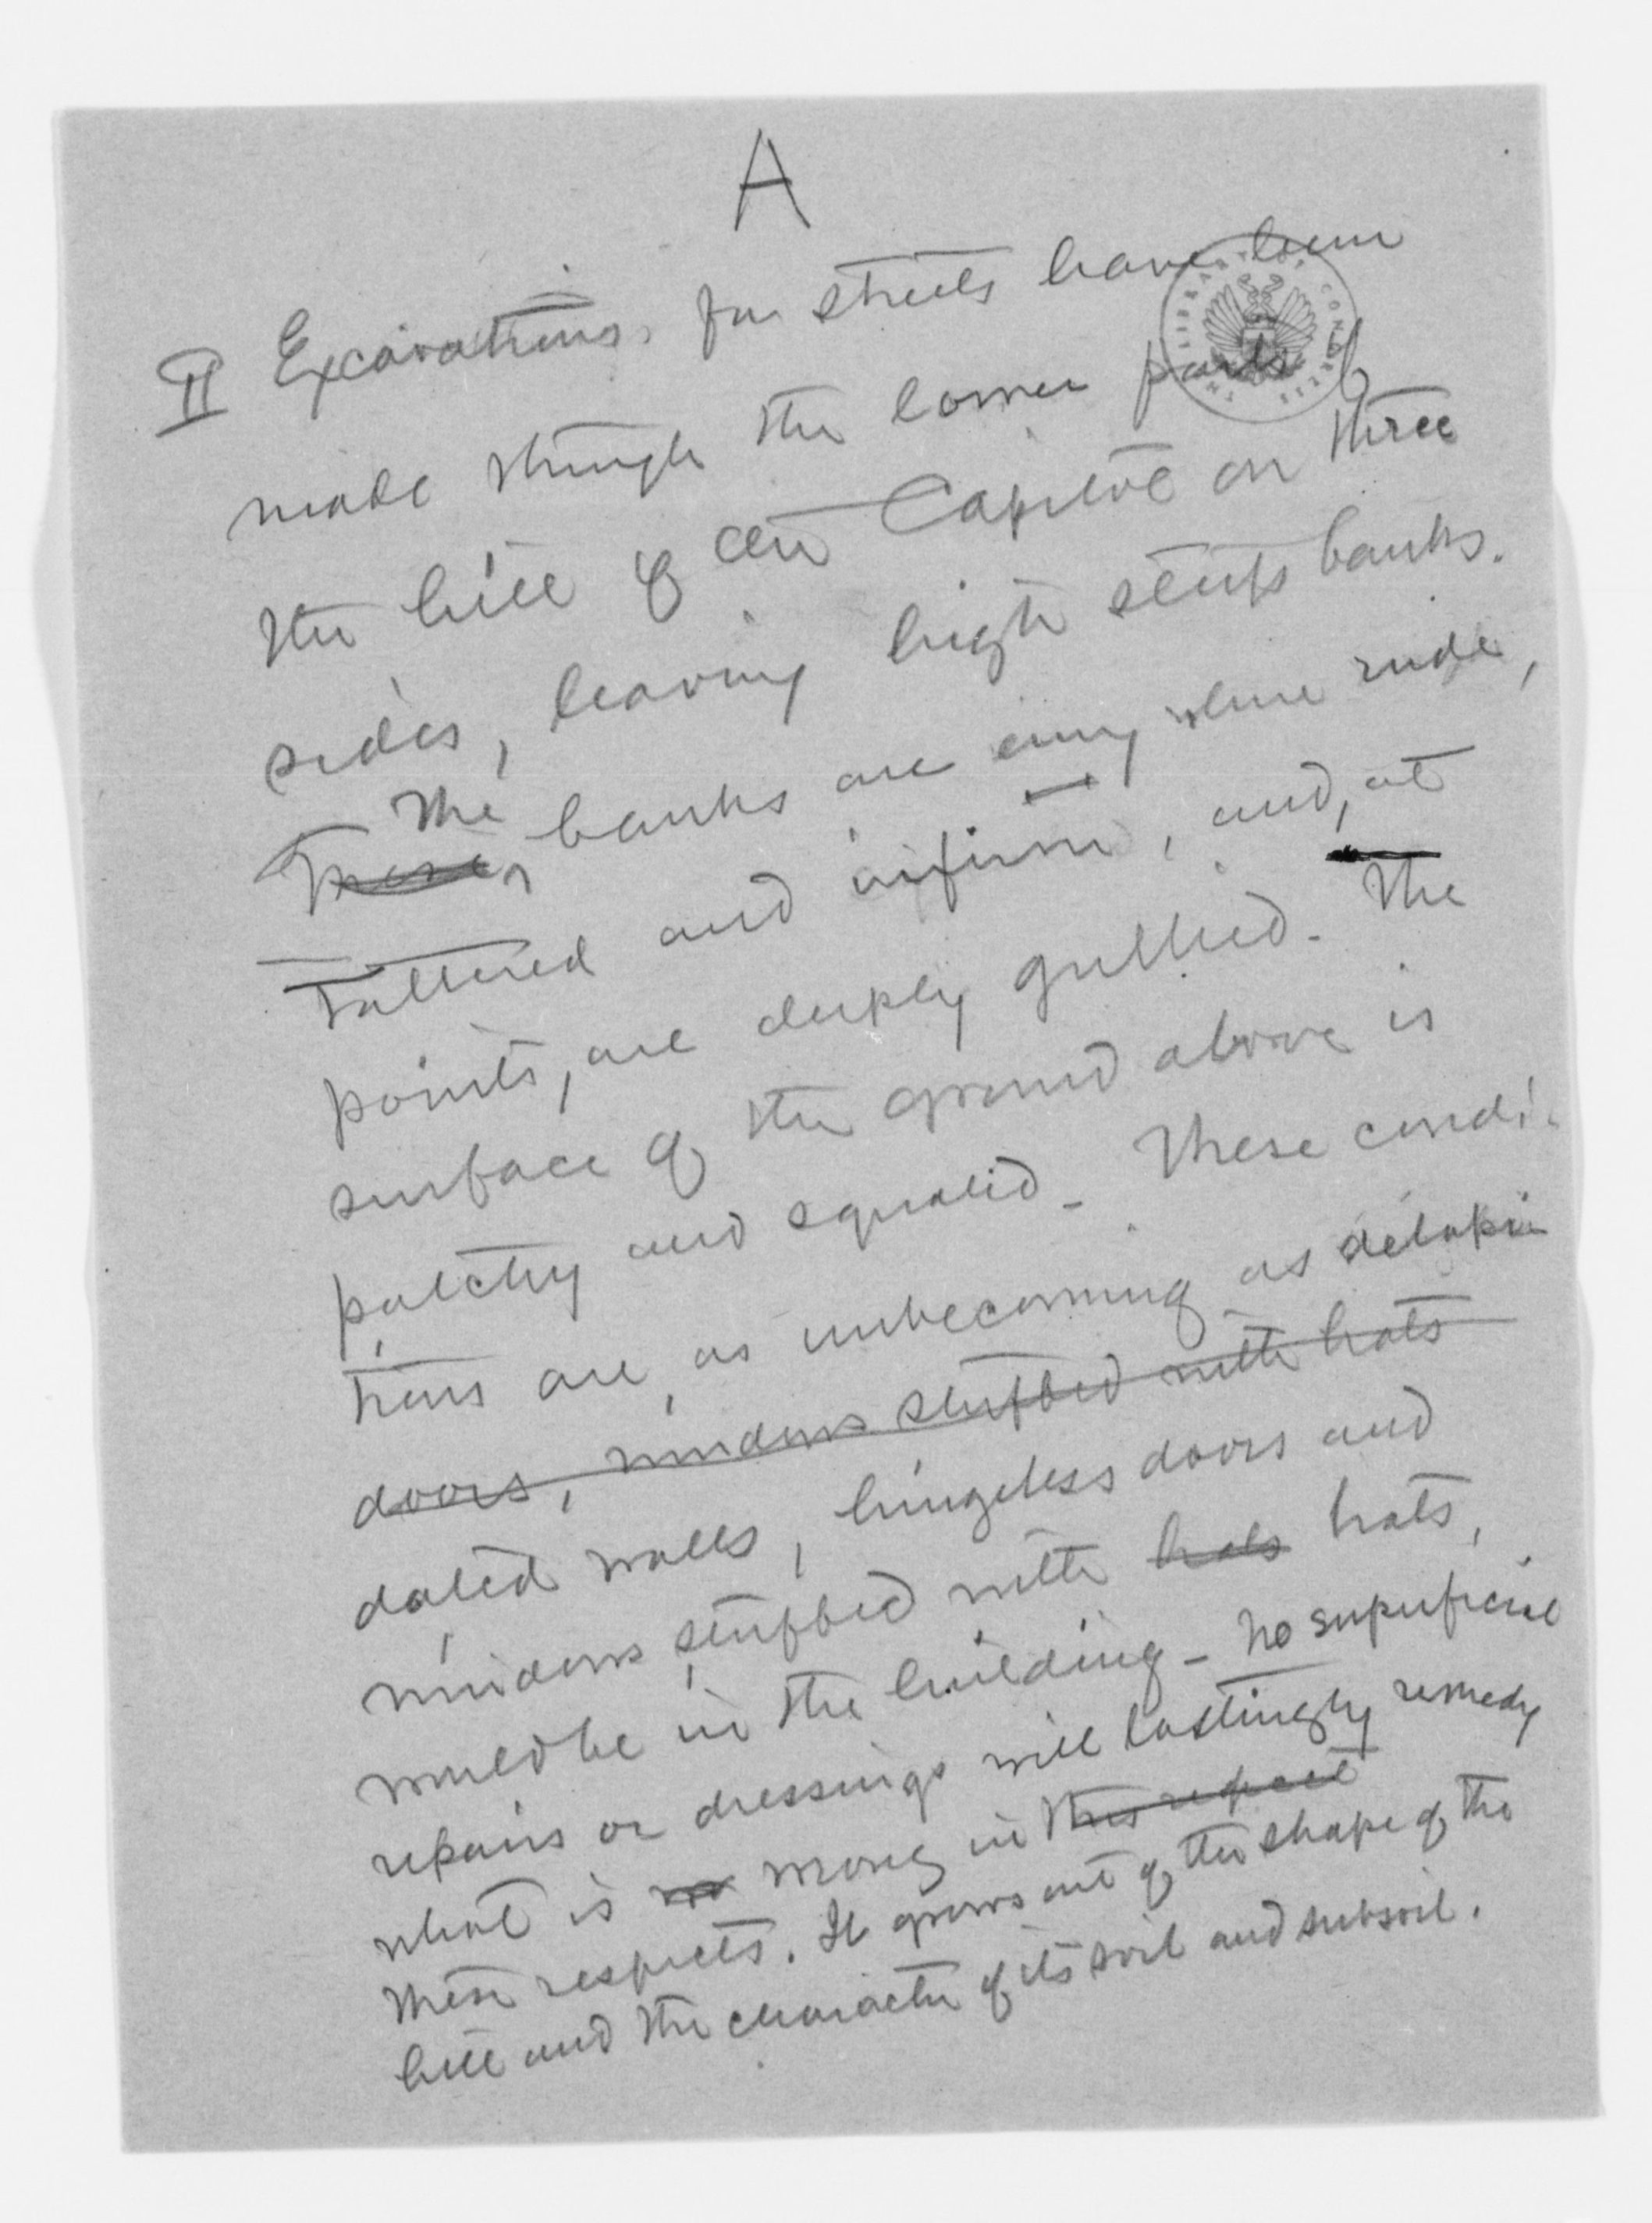 A
II Excavations, for streets have been
made through the lower parts of
the hill of the Capitol on three
sides, leaving high steep banks.
The
These banks are every where rude,
tattered and infirm, and, at
points, are deeply gullied. The
surface of the ground above is
patchy and squalid. These condi-
tions are, as unbecoming as delapi-
doors, windows stuffed with hats
dated walls, hingeless doors and
windows stuffed with hats hats,
would be in the building - no superficial
repairs or dressings will lastingly remedy
what is wrong in this respect
these respects. It grows out of the shape of the
hill and the character of its soil and subsoil.
THE LIBRARY OF CONGRESS